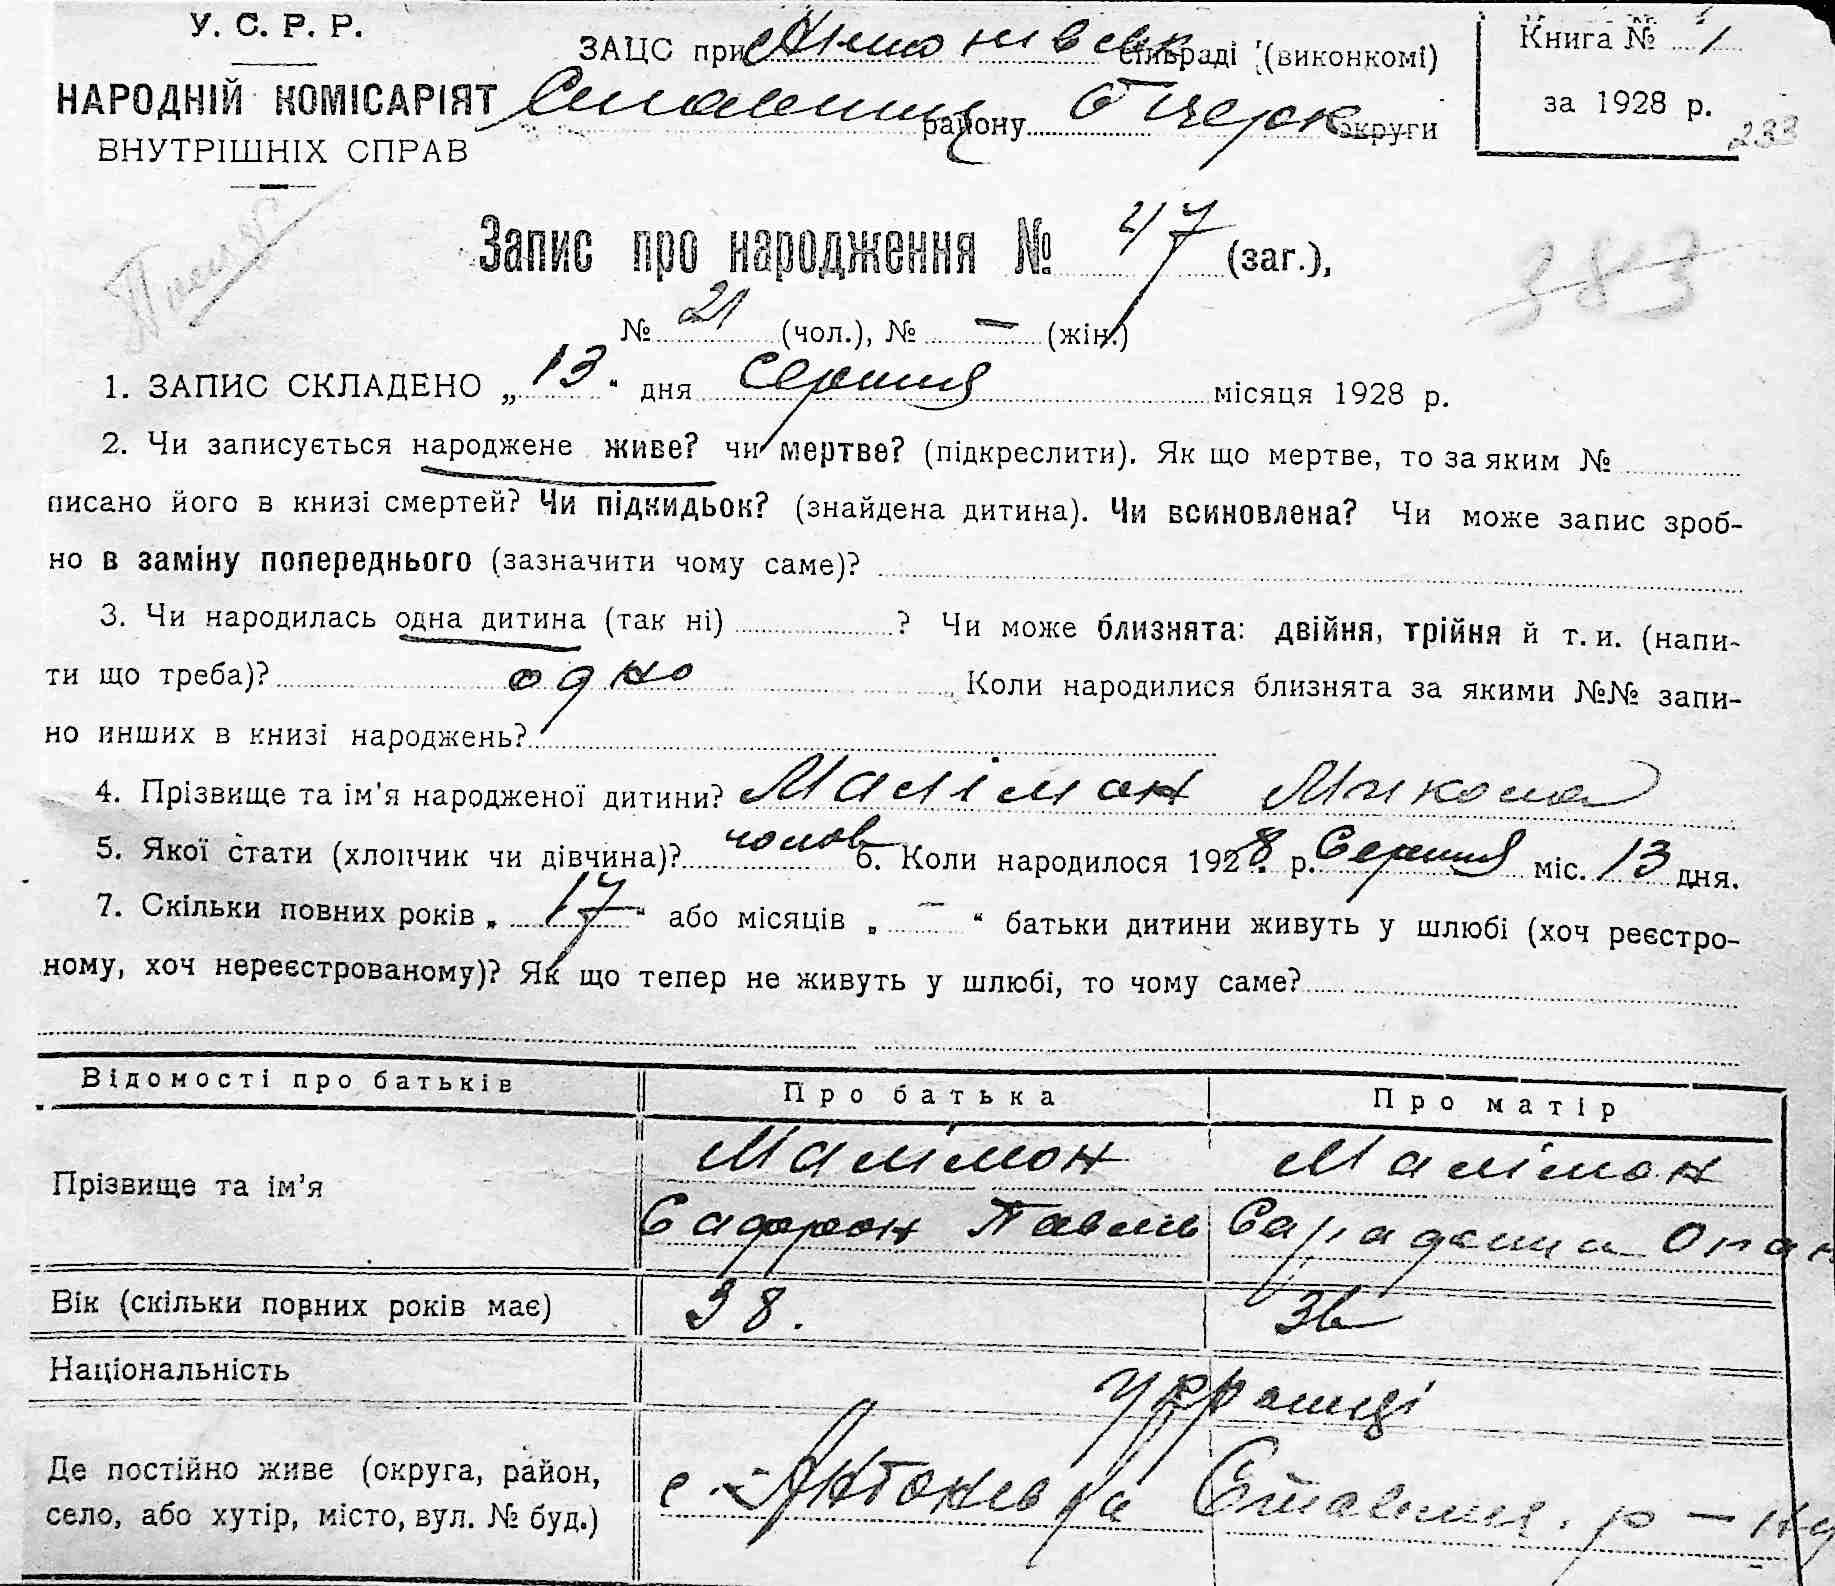 У. С. Р. Р.
НАРОДНІЙ КОМІСАРІЯТ
ВНУТРІШНІХ СПРАВ
ЗАЦС при Антонівськ сільраді (виконкомі)
району Б Церк округи
Книга № 1
за 1928 р.
233
Запис про народження № 47 (заг.),
383
№ 21 (чол.), № — (жін.)
1. ЗАПИС СКЛАДЕНО „13" дня Серпня місяця 1928 р.
2. Чи записується народжене живе? чи мертве? (підкреслити). Як що мертве, то за яким №
писано його в книзі смертей? Чи підкидьок? (знайдена дитина). Чи всиновлена? Чи може запис зроб-
но в заміну попереднього (зазначити чому саме)?
3. Чи народилась одна дитина (так ні) ? Чи може близнята: двійня, трійня й т. и. (напи-
ти що треба)? одно Коли народилися близнята за якими №№ запи-
но инших в книзі народжень?
4. Прізвище та ім'я народженої дитини? Малімон Микола
5. Якої стати (хлопчик чи дівчина)? чолов 6. Коли народилося 1928 р. Серпня міс. 13 дня.
7. Скільки повних років „17" або місяців „—" батьки дитини живуть у шлюбі (хоч реєстро-
ному, хоч нереєстрованому)? Як що тепер не живуть у шлюбі, то чому саме?
Відомості про батьків Про батька Про матір
Прізвище та ім'я Малімон Малімон
Сафрон Павль Опан
Вік (скільки повних років має) 38. 36
Національність Украинці
Де постійно живе (округа, район,
село, або хутір, місто, вул. № буд.) с. Антонівка Ставищ. р-ну